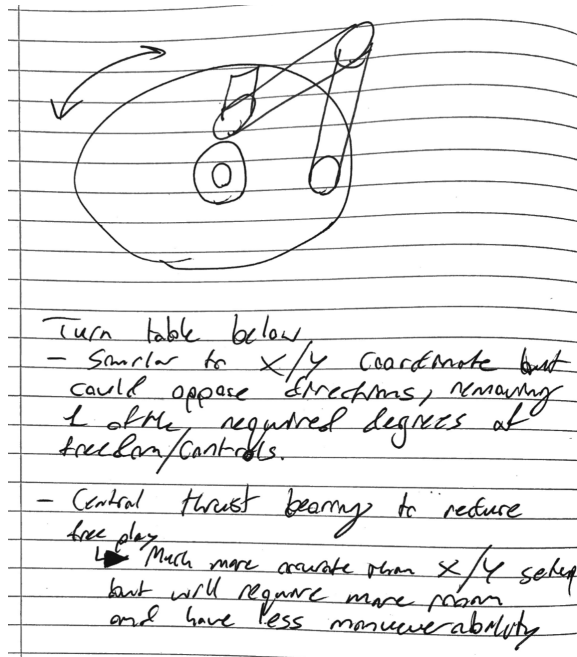 Turn table below
- Similar to X/Y Coordinate but
could oppose directions, removing
1 of the required degrees of
freedom/controls.
- Central thrust bearing to reduce
free play
↳ Much more accurate than X/Y setup
but will require more room
and have less manueverability